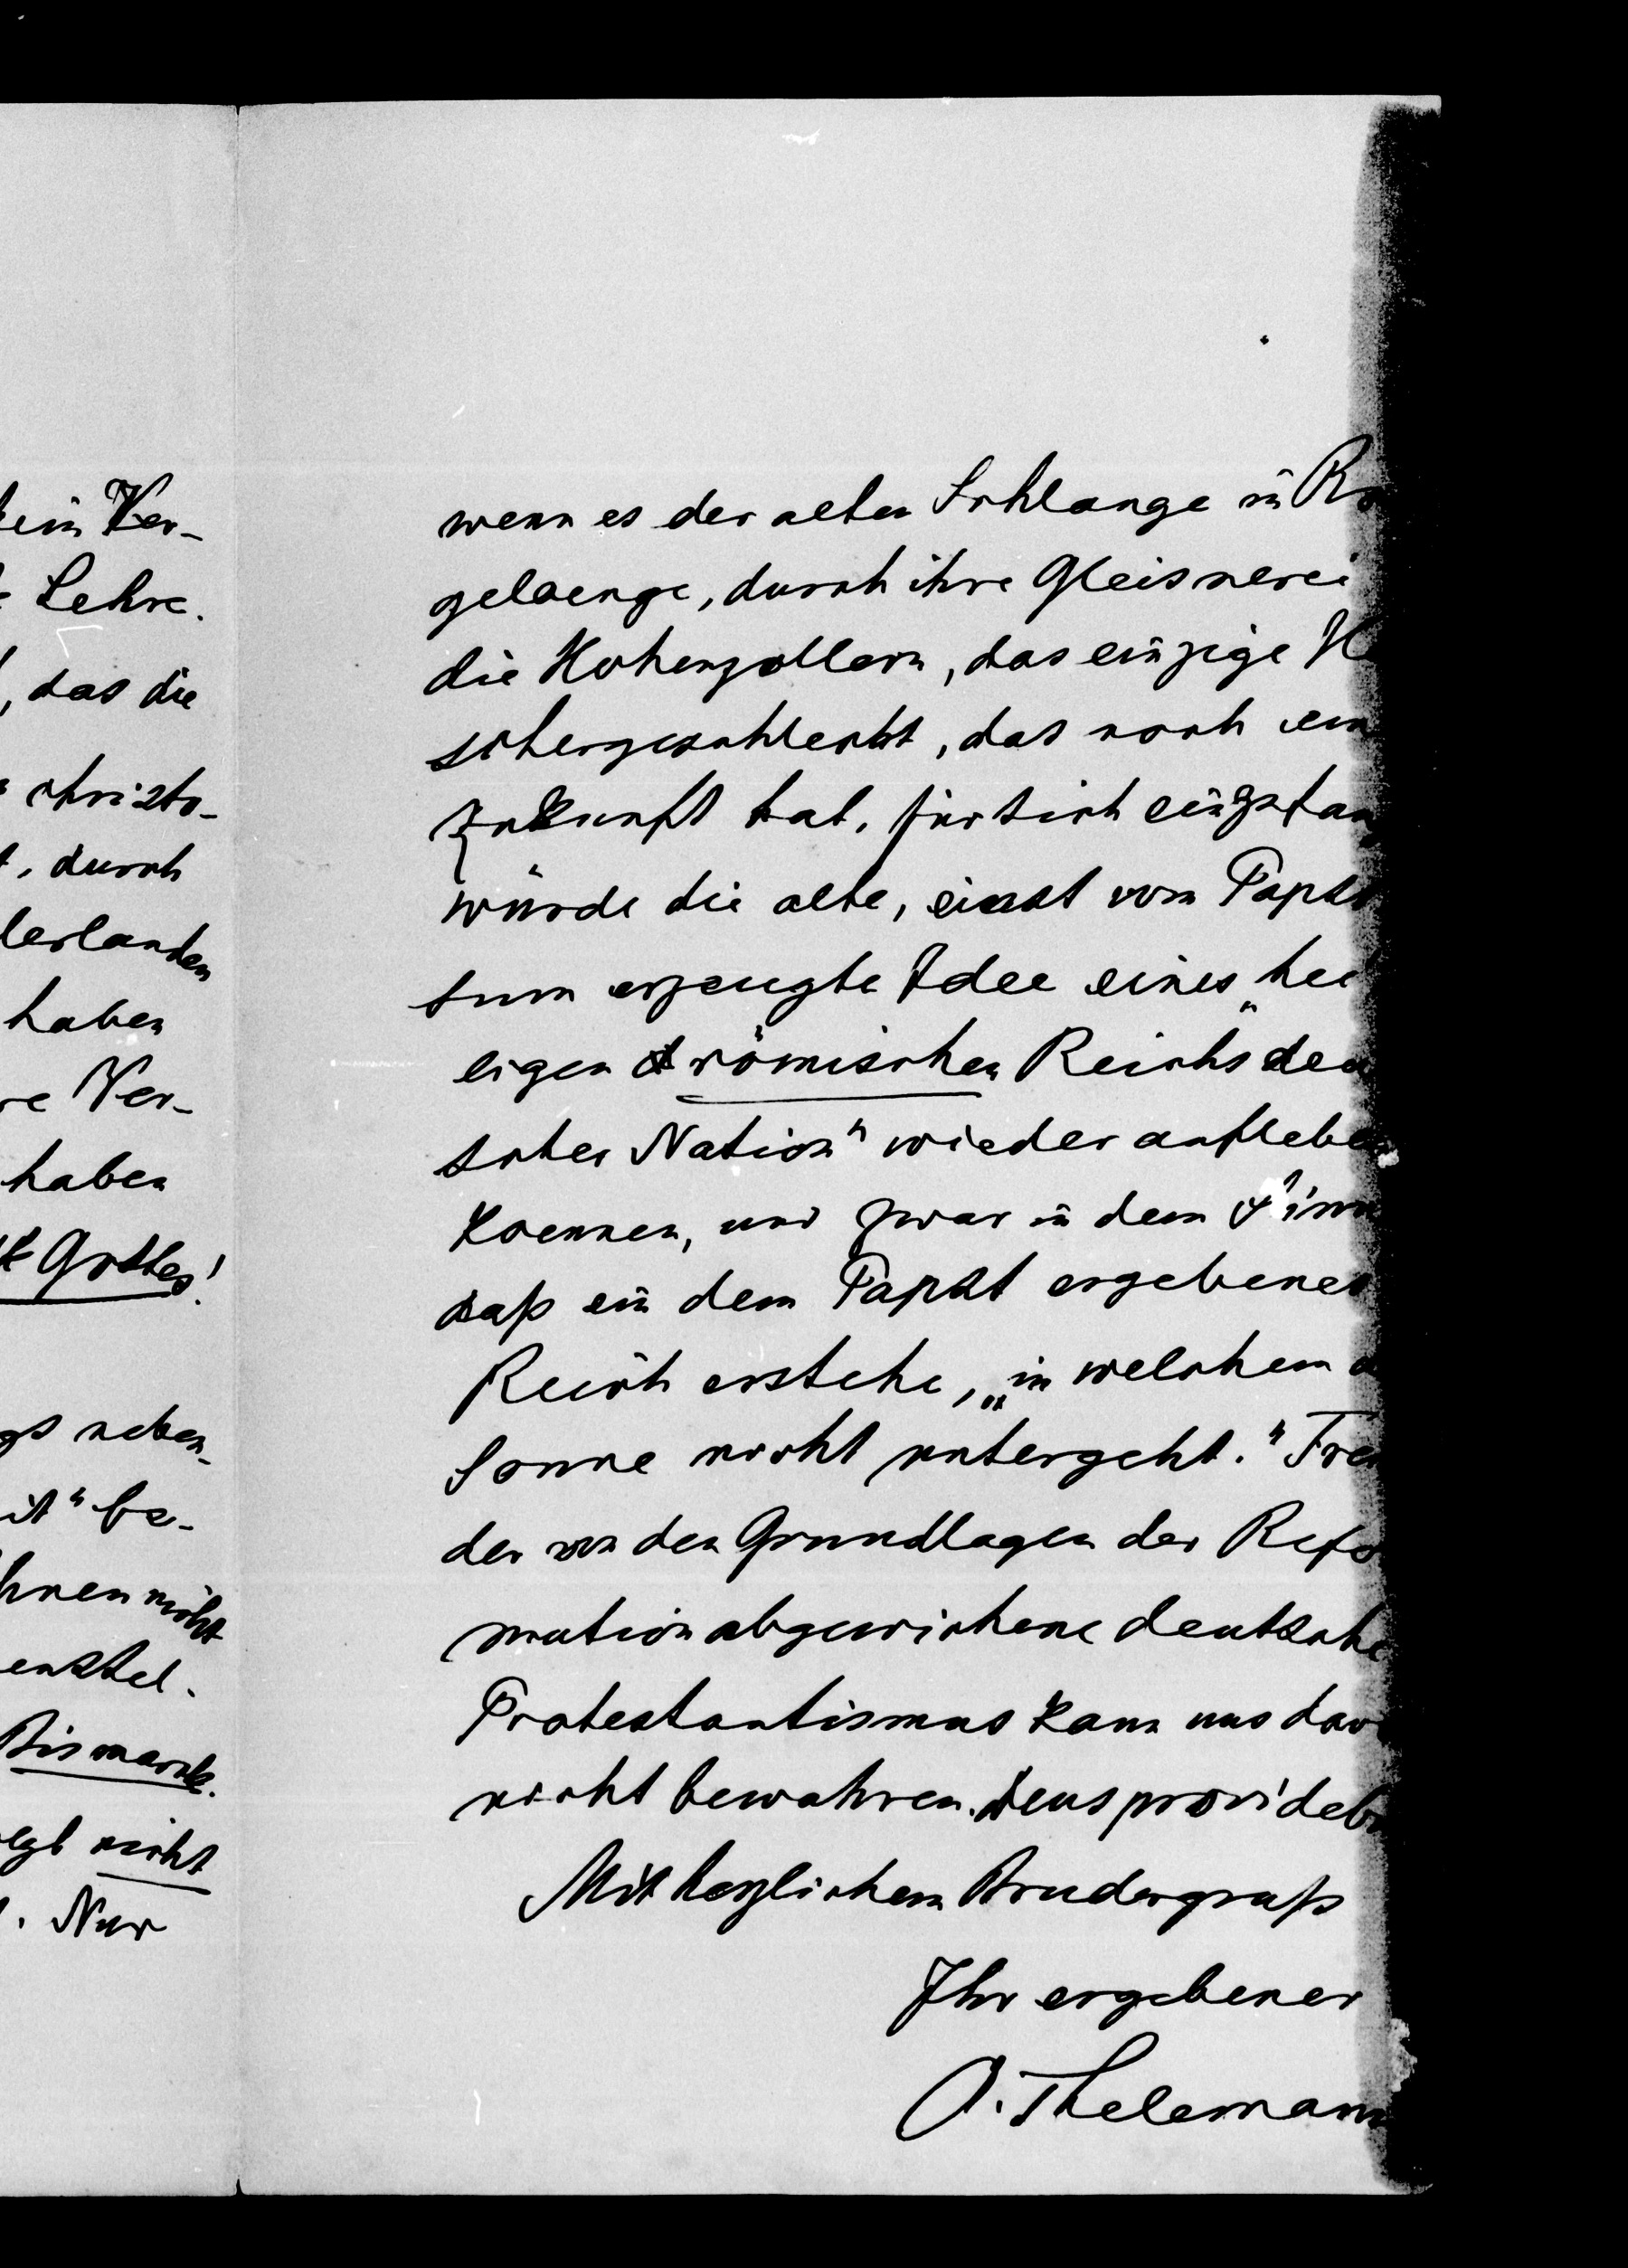 ein Ver-
Lehre.
, das die
christo-
t, durch
derlanden
haben
re Ver-
haben
Gottes!
gs neben-
it" be-
hnen nicht
enstel-
Bismarck.
egt nicht
. Nur
wenn es der alten Schlange in Ro
gelaenge, durch ihre Gleisnerei
die Hohenzollern, das einzige H
schergeschlecht, das noch eine
Zukunft hat, für sich einzufan
würde die alte, einst vom Papst
tum erzeugte Idee eines „hei
ligen römischen Reichs deu
scher Nation" wieder aufleben
koennen, und zwar in dem Sinn
daß ein dem Papst ergebenes
Reich erstehe, „in welchem d
Sonne nicht untergeht." Fre
der von den Grundlagen der Refo
mation abgewichene deutsche
Protestantismus kann uns dav
nicht bewahren. Deus provideb
Mit herzlichem Brudergruß
Ihr ergebener
O. Thelemann